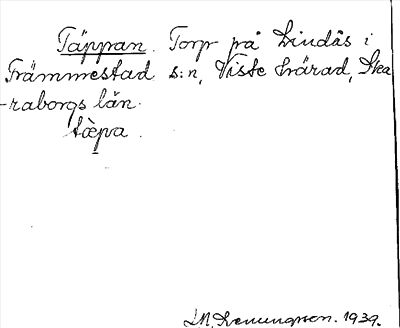 Täppan. Torp på Lindås i
Främmestad s:n, Viste härad, Ska
-raborgs län.
tæ̀pa.
1939.